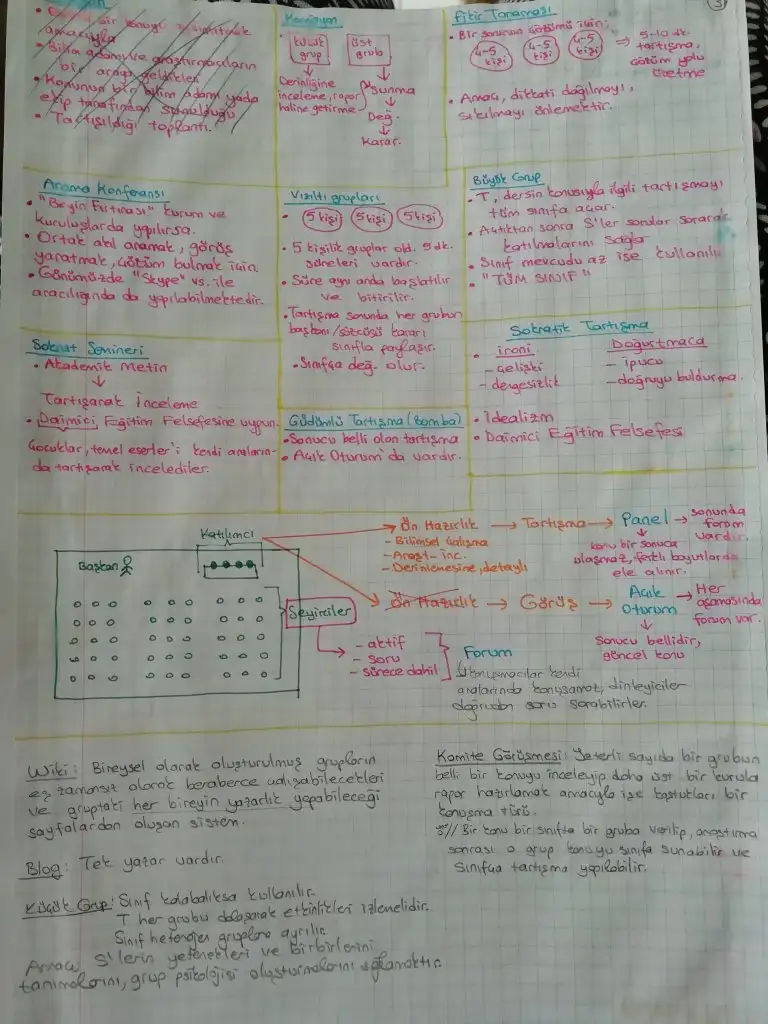 bir konuyu
amacıyla
• Bilim adamı ve araştırmacıların
bir araya geldikleri
• Konunun bir bilim adamı yada
ekip tarafından sunulduğu
• Tartışıldığı toplantı.
Komisyon
küçük grup
üst grub
Derinliğine
inceleme, rapor
haline getirme
Sunma
Değ.
Karar.
Fikir Taraması
3
• Bir sorunun çözümü için;
4-5 kişi
4-5 kişi
4-5 kişi
⇒ 5-10 dk.
tartışma,
çözüm yolu
üretme
• Amaç, dikkati dağılmayı,
sıkılmayı önlemektir.
Arama Konferansı
• "Beyin Fırtınası" kurum ve
kuruluşlarda yapılırsa.
• Ortak akıl aramak, görüş
yaratmak, çözüm bulmak için.
• Günümüzde "Skype" vs. ile
aracılığında da yapılabilmektedir.
Vızıltı grupları
• 5 kişi 5 kişi 5 kişi
• 5 kişilik gruplar old. 5 dk.
süreleri vardır.
• Süre aynı anda başlatılır
ve bitirilir.
• Tartışma sonunda her grubun
başkanı/sözcüsü kararı
sınıfla paylaşır.
• Sınıfça değ. olur.
Büyük Grup
• T, dersin konusuyla ilgili tartışmayı
tüm sınıfa açar.
• Açtıktan sonra S'ler sorular sorarak
katılmalarını sağlar
• Sınıf mevcudu az ise kullanılır
• "TÜM SINIF"
Sokrat Semineri
• Akademik Metin
↓
Tartışarak İnceleme
• Daimici, Eğitim Felsefesine uygun.
Çocuklar, temel eserler'i kendi araların-
da tartışarak incelediler.
Güdümlü Tartışma (Bomba)
• Sonucu belli olan tartışma
• Açık Oturum'da vardır.
Sokratik Tartışma
• ironi
– çelişki
– dengesizlik
Doğurtmaca
– ipucu
– doğruyu buldurma.
• İdealizm
• Daimici Eğitim Felsefesi
Katılımcı
Başkan
Seyirciler
Ön Hazırlık → Tartışma → Panel → sonunda
forum
vardır.
– Bilimsel Çalışma
– Araşt-inc.
– Derinlemesine, detaylı
konu bir sonuca
ulaşmaz, farklı boyutlarda
ele alınır.
Ön Hazırlık → Görüş → Açık
Oturum
→ Her
aşamasında
forum var.
Sonucu bellidir,
güncel konu
– aktif
– soru
– sürece dahil
Forum
↳ konuşmacılar kendi
aralarında konuşamaz, dinleyiciler
doğrudan soru sorabilirler.
Wiki: Bireysel olarak oluşturulmuş grupların
eş zamansız olarak beraberce çalışabilecekleri
ve gruptaki her bireyin yazarlık yapabileceği
sayfalardan oluşan sistem.
Blog: Tek yazar vardır.
Küçük Grup: Sınıf kalabalıksa kullanılır.
T her grubu dolaşarak etkinlikleri izlemelidir.
Sınıf heterojen gruplara ayrılır.
Amaç S'lerin yetenekleri ve birbirlerini
tanımalarını, grup psikolojisi oluşturmalarını sağlamaktır.
Komite Görüşmesi: Yeterli sayıda bir grubun
belli bir konuyu inceleyip daha üst bir kurula
rapor hazırlamak amacıyla işe koştukları bir
konuşma türü.
// Bir konu bir sınıfta bir gruba verilip, araştırma
sonrası o grup konuyu sınıfa sunabilir ve
sınıfça tartışma yapılabilir.